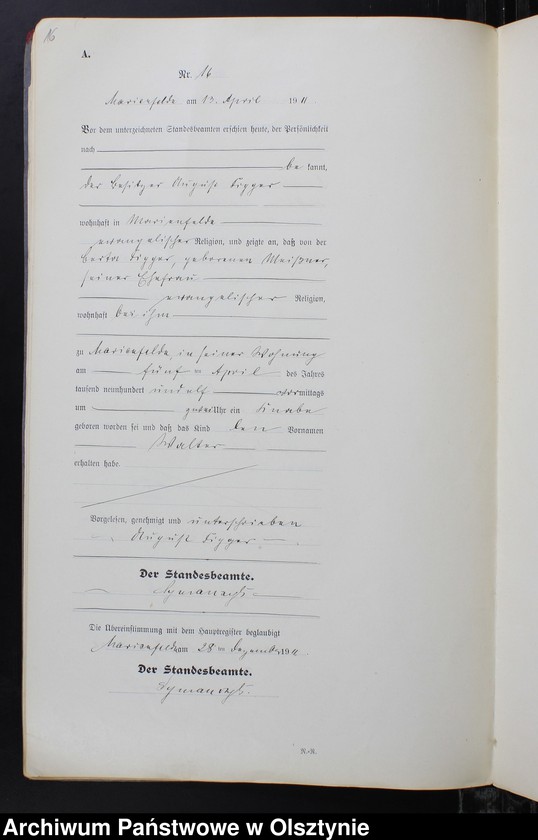 16
A.
Nr. 16
Marienfelde am 13. April 1911
Vor dem unterzeichneten Standesbeamten erschien heute, der Persönlichkeit
nach
be kannt,
der Besitzer August
wohnhaft in Marienfelde
evangelischer Religion, und zeigte an, daß von der
Berta geborenen Meißner,
seiner Ehefrau
evangelischer Religion,
wohnhaft bei ihm
zu Marienfelde, in seiner Wohnung
am fünf ten April des Jahres
tausend neunhundert und elf vormittags
um Uhr ein Knabe
geboren worden sei und daß das Kind den Vornamen
Walter
erhalten habe.
Vorgelesen, genehmigt und unterschrieben
August
Der Standesbeamte.
Die Übereinstimmung mit dem Hauptregister beglaubigt
Marienfelde am 28 ten Dezember 1911.
Der Standesbeamte.
N.-R.
Archiwum Państwowe w Olsztynie